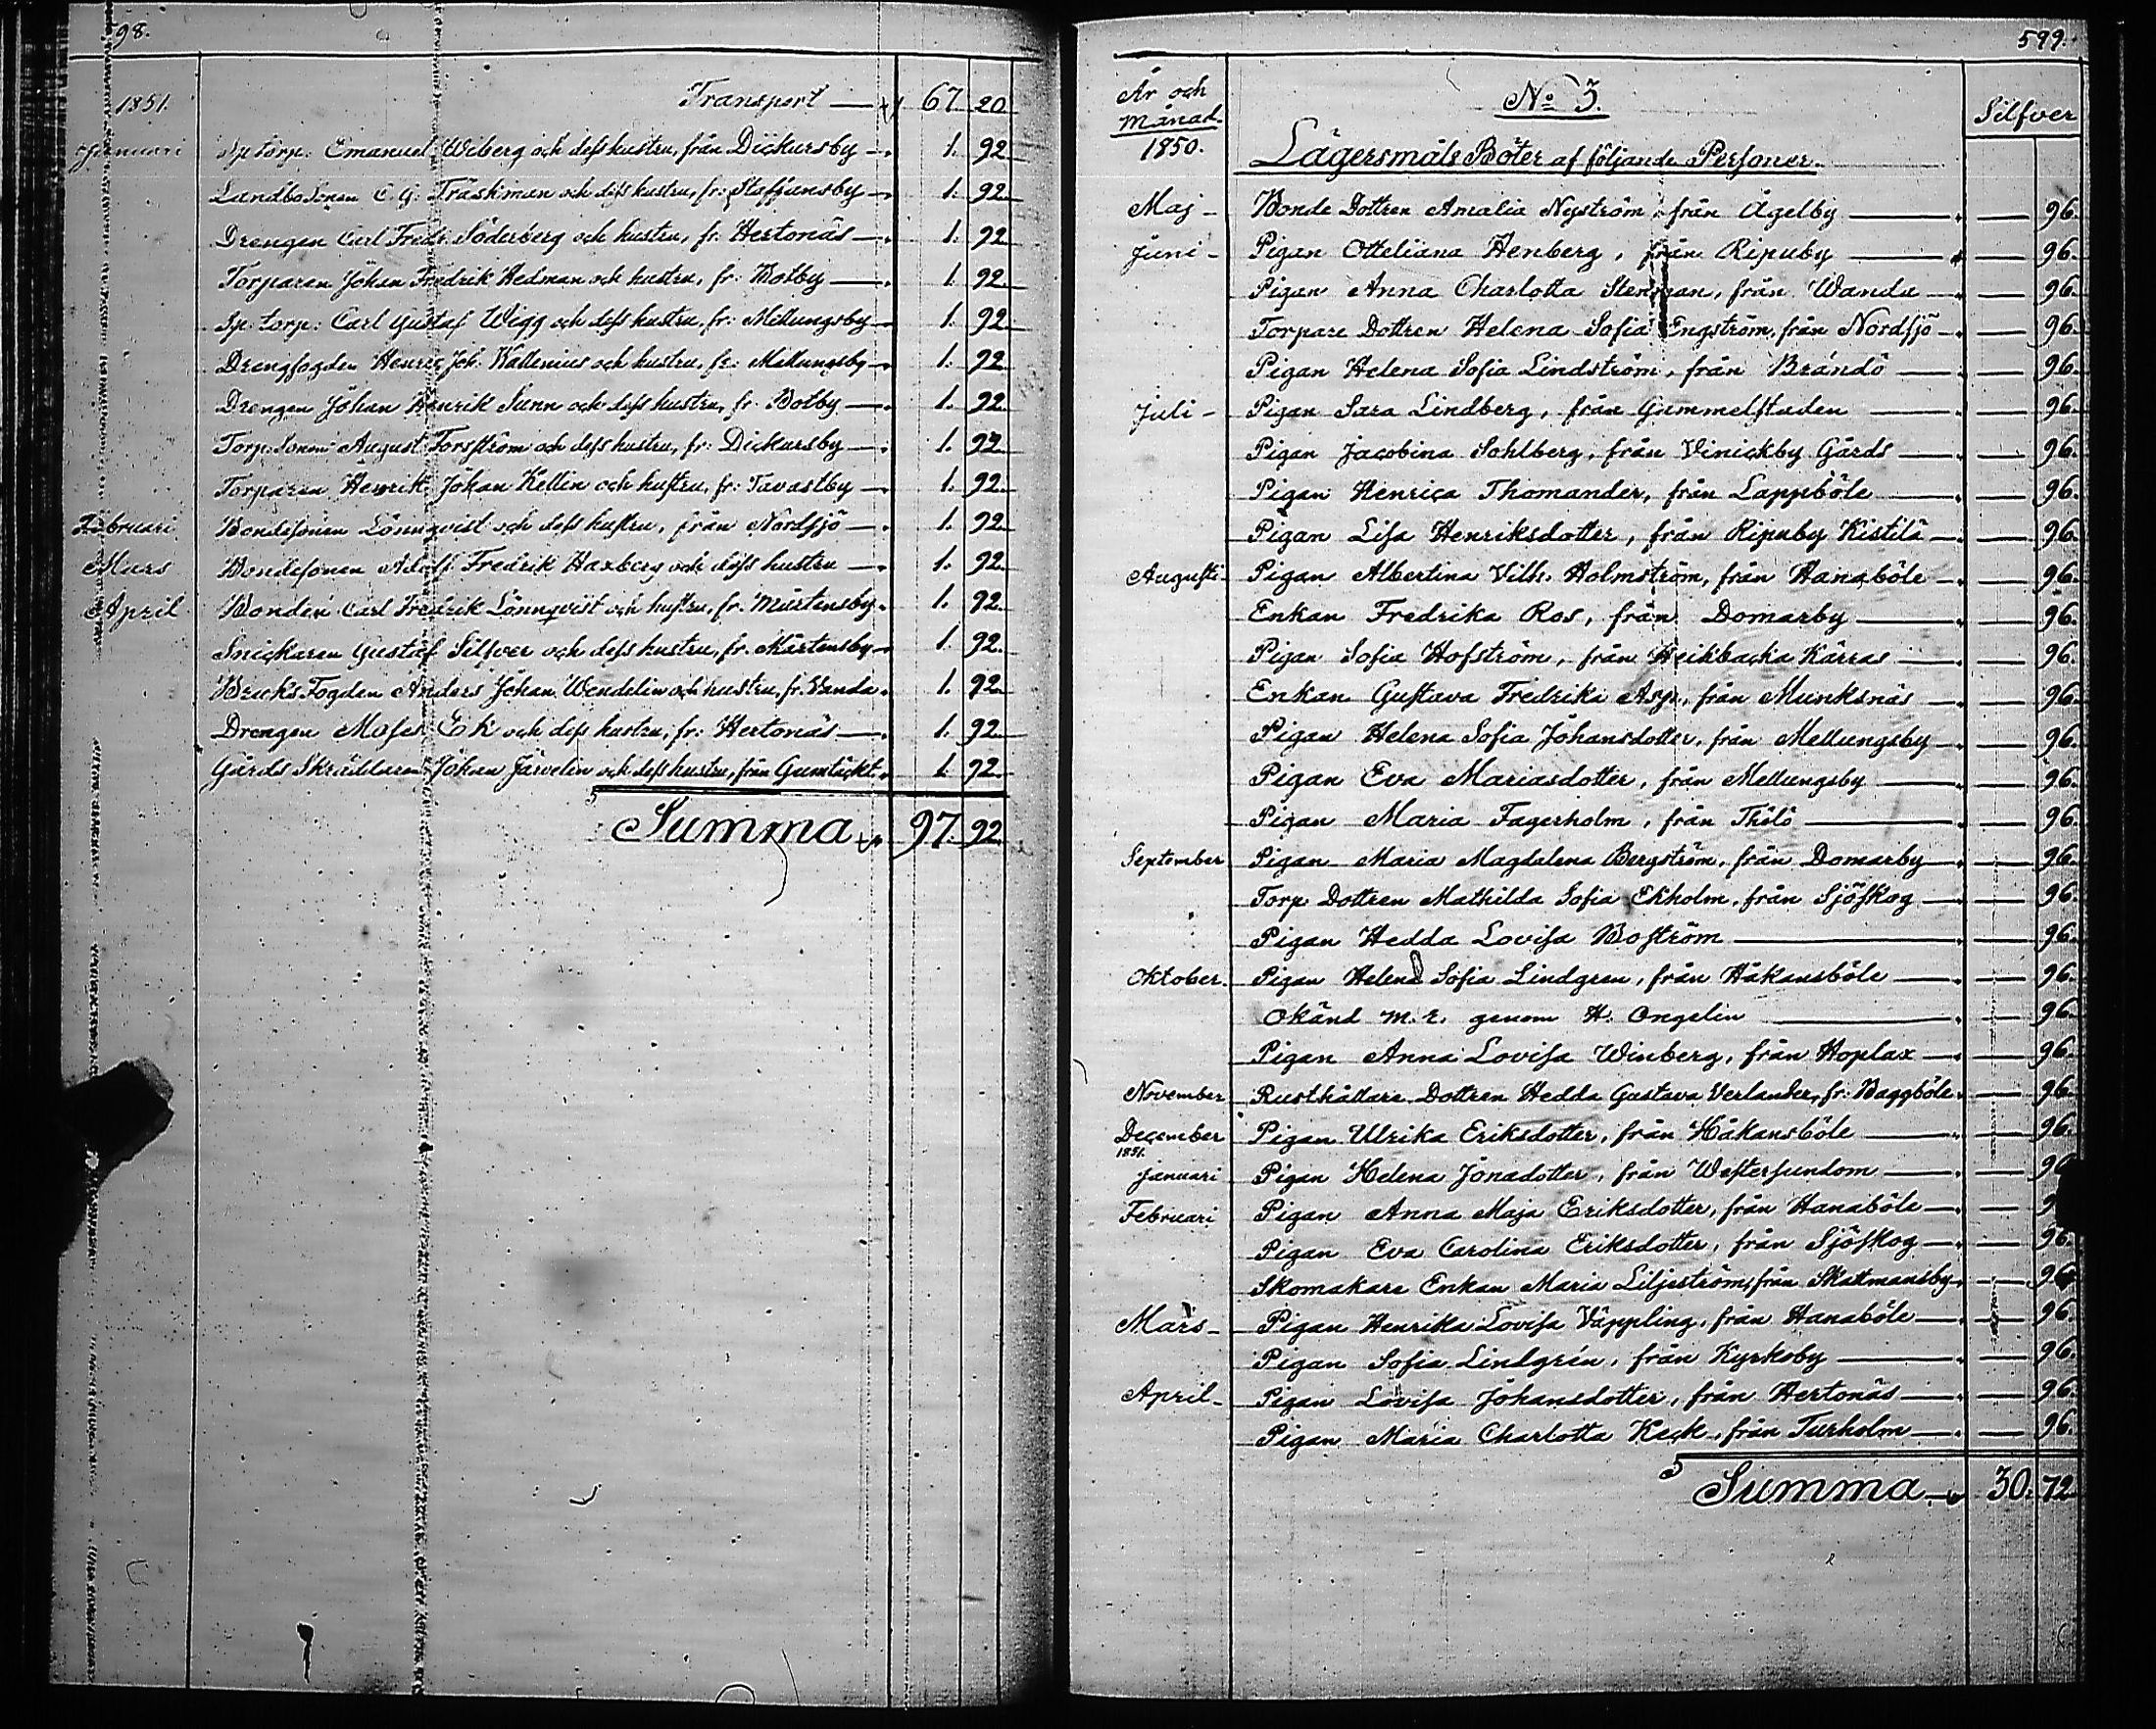 598.
1851. Transport — 67. 20
Januari Sp. torp: Emanuel Wiberg och dess hustru, från Dickursby — 1. 92
Landbo Sonen C. G. Träskman och dess hustru, fr: Staffansby — 1. 92
Drengen Carl Fredr. Söderberg och hustru, fr: Hertonäs — 1. 92
Torparen Johan Fredrik Hedman och hustru, fr: Botby — 1. 92
Sp: torp: Carl Gustaf Wigg och dess hustru, fr: Mellungsby — 1. 92
Drengfogden Henric Joh. Kallenius och hustru, fr: Mellungsby — 1. 92
Drengen Johan Henrik Sunn och dess hustru, fr. Botby — 1. 92
Torp: Sonen August Forsström och dess hustru, fr: Dickursby — 1. 92
Torparen Henrik Johan Kellin och hustru, fr: Tavastby — 1. 92
Februari Bondesonen Lönnqvist och dess hustru, från Nordsjö — 1. 92
Mars Bondesonen Adolf Fredrik Haxberg och dess hustru — 1. 92
April Bonden Carl Fredrik Lönnqvist och hustru, fr. Mårtensby. 1. 92
Snickaren Gustaf Silfver och dess hustru, fr. Mårtensby 1. 92
Bruks Fogden Anders Johan Wendelin och hustru, fr. Vanda. 1. 92
Drengen Moses Ek och dess hustru, fr: Hertonäs — 1. 92
Gårds Skräddaren Johan Järvelin och dess hustru, från Gumtäckt. 1. 92
Summa 97. 92
599.
År och
Månad.
No 3.
Silfver
1850. Lägersmåls Böter af följande Personer.
Maj - Bonde Dottren Amalia Nyström, från Ågelby — 96.
Juni - Pigan Otteliana Henberg, från Ripuby — 96.
Pigan Anna Charlotta Stenman, från Wanda — 96.
Torpare Dottren Helena Sofia Engström, från Nordsjö — 96.
Pigan Helena Sofia Lindström, från Brändö — 96.
Juli - Pigan Sara Lindberg, från Gammelstaden — 96.
Pigan Jacobina Sohlberg, från Vinickby Gårds — 96.
Pigan Henrica Thomander, från Lappböle — 96.
Pigan Lisa Henriksdotter, från Ripuby Kistilä — 96.
Augusti - Pigan Albertina Vilh. Holmström, från Hanaböle — 96.
Enkan Fredrika Ros, från Domarby — 96.
Pigan Sofia Hofström, från Heikbacka Kärras — 96.
Enkan Gustava Fredrika Asp, från Munksnäs — 96.
Pigan Helena Sofia Johansdotter, från Mellungsby — 96.
Pigan Eva Mariasdotter, från Mellungsby — 96.
Pigan Maria Fagerholm, från Thölö — 96.
September Pigan Maria Magdalena Bergström, från Domarby — 96.
Torp Dottren Mathilda Sofia Ekholm, från Sjöskog — 96.
Pigan Hedda Lovisa Boström — 96.
Oktober. Pigan Helena Sofia Lindgren, från Håkansböle — 96.
Okänd m. r. genom H. Ongelin — 96.
Pigan Anna Lovisa Winberg, från Hoplax — 96.
November Rusthållare Dottren Hedda Gustava Verlander, fr: Baggböle — 96.
December Pigan Ulrika Eriksdotter, från Håkansböle — 96.
1851.
Januari Pigan Helena Jonadotter, från Westersundom — 96
Februari Pigan Anna Maja Eriksdotter, från Hanaböle — 9
Pigan Eva Carolina Eriksdotter, från Sjöskog — 96.
Skomakare Enkan Maria Liljeström, från Skattmansby — 96
Mars - Pigan Henrika Lovisa Väppling, från Hanaböle — 96.
Pigan Sofia Lindgrén, från Kyrkoby — 96.
April - Pigan Lovisa Johansdotter, från Hertonäs — 96.
Pigan Maria Charlotta Keck, från Turholm — 96.
Summa 30. 72